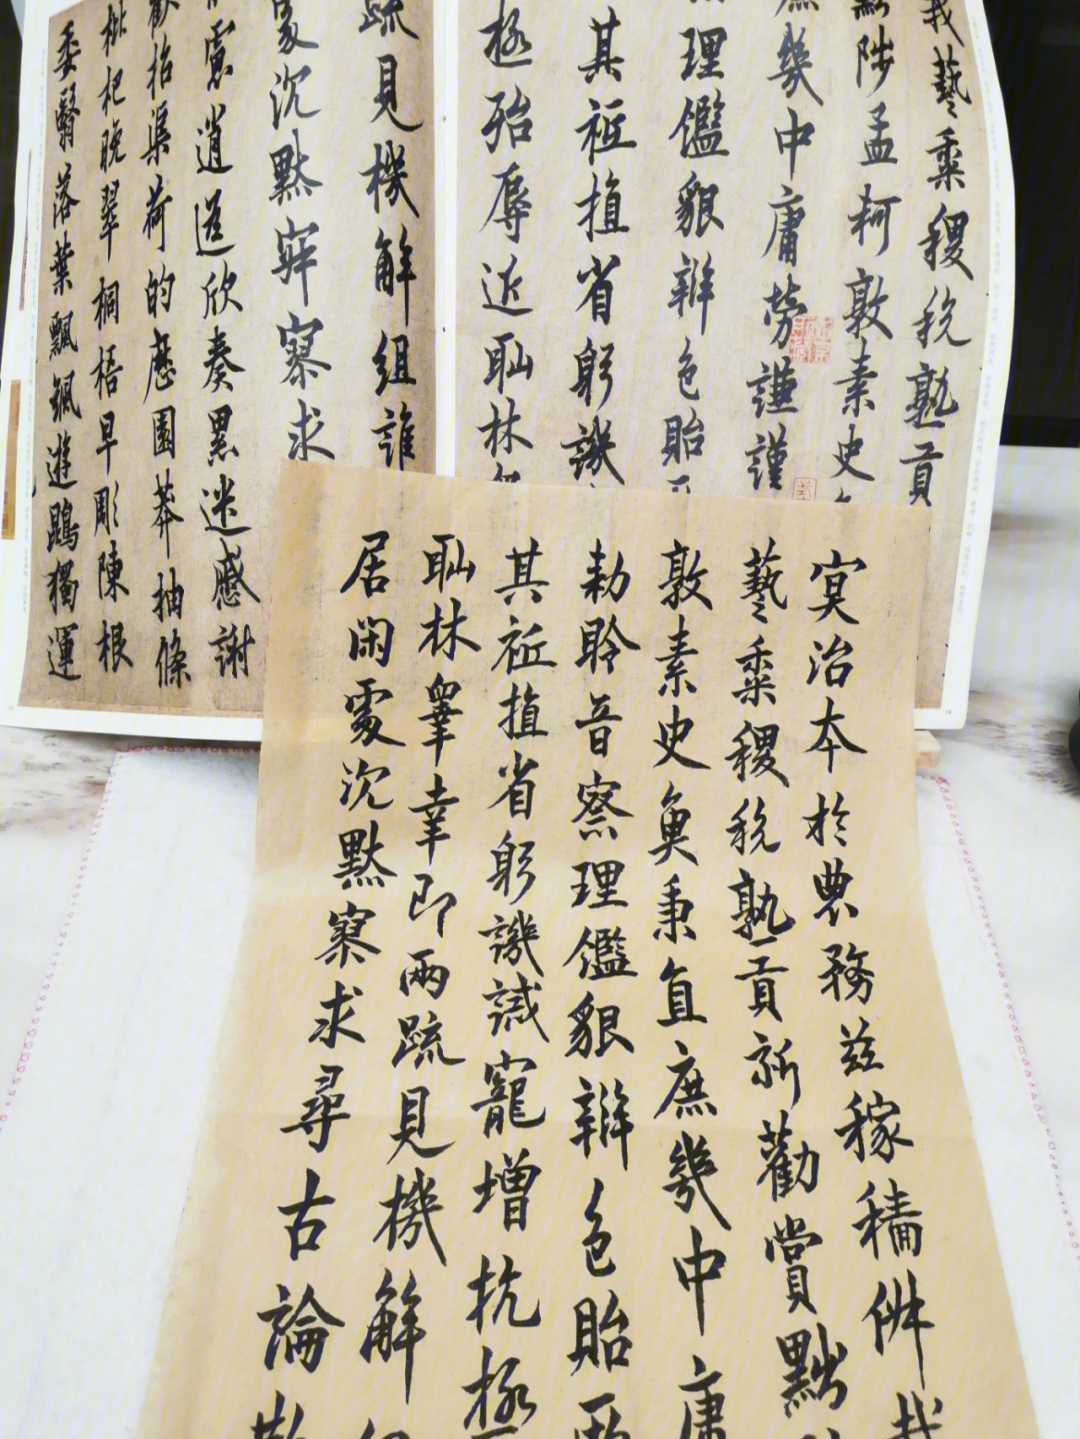 我藝黍稷稅熟貢
陟孟軻敦素史
庶幾中庸勞謙謹
理鑑貌辨色貽
其祗植省躬譏
極殆辱近恥林
疏見機解組誰
處沉默寂寥求
慮逍遙欣奏累遣慼謝
招渠荷的歷園莽抽條
枇杷晚翠桐梧早彫陳根
委翳落葉飄颻遊鵾獨運
冥治本於農務茲稼穡俶我
藝黍稷稅熟貢新勸賞黜
敦素史魚秉直庶幾中庸
勑聆音察理鑑貌辨色貽厥
其祗植省躬譏誡寵增抗極
恥林皋幸即兩疏見機解
居閑處沉默寥求尋古論散